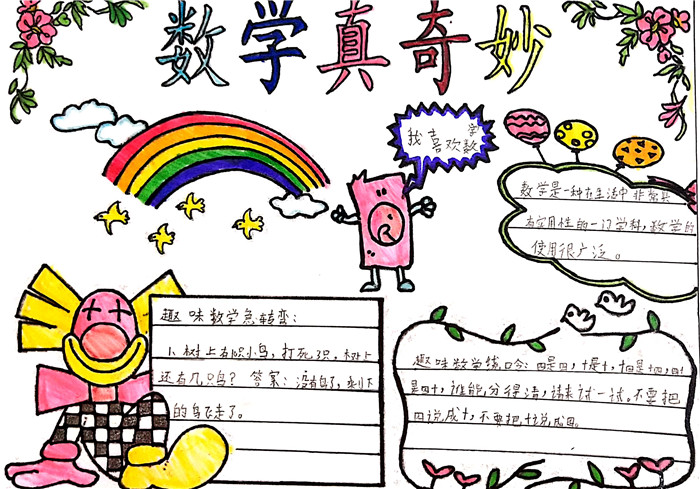 数学真奇妙
我喜欢数学
数学是一种在生活中非常具
有实用性的一门学科,数学的
使用很广泛。
趣味数学急转弯:
1、树上有10只小鸟,打死3只,树上
还有几只鸟?答案:没有鸟了,剩下
的鸟飞走了。
趣味数学绕口令:四是四,十是十,十四是十四,四十
是四十,谁能分得清,请来试一试。不要把
四说成十,不要把十说成四。